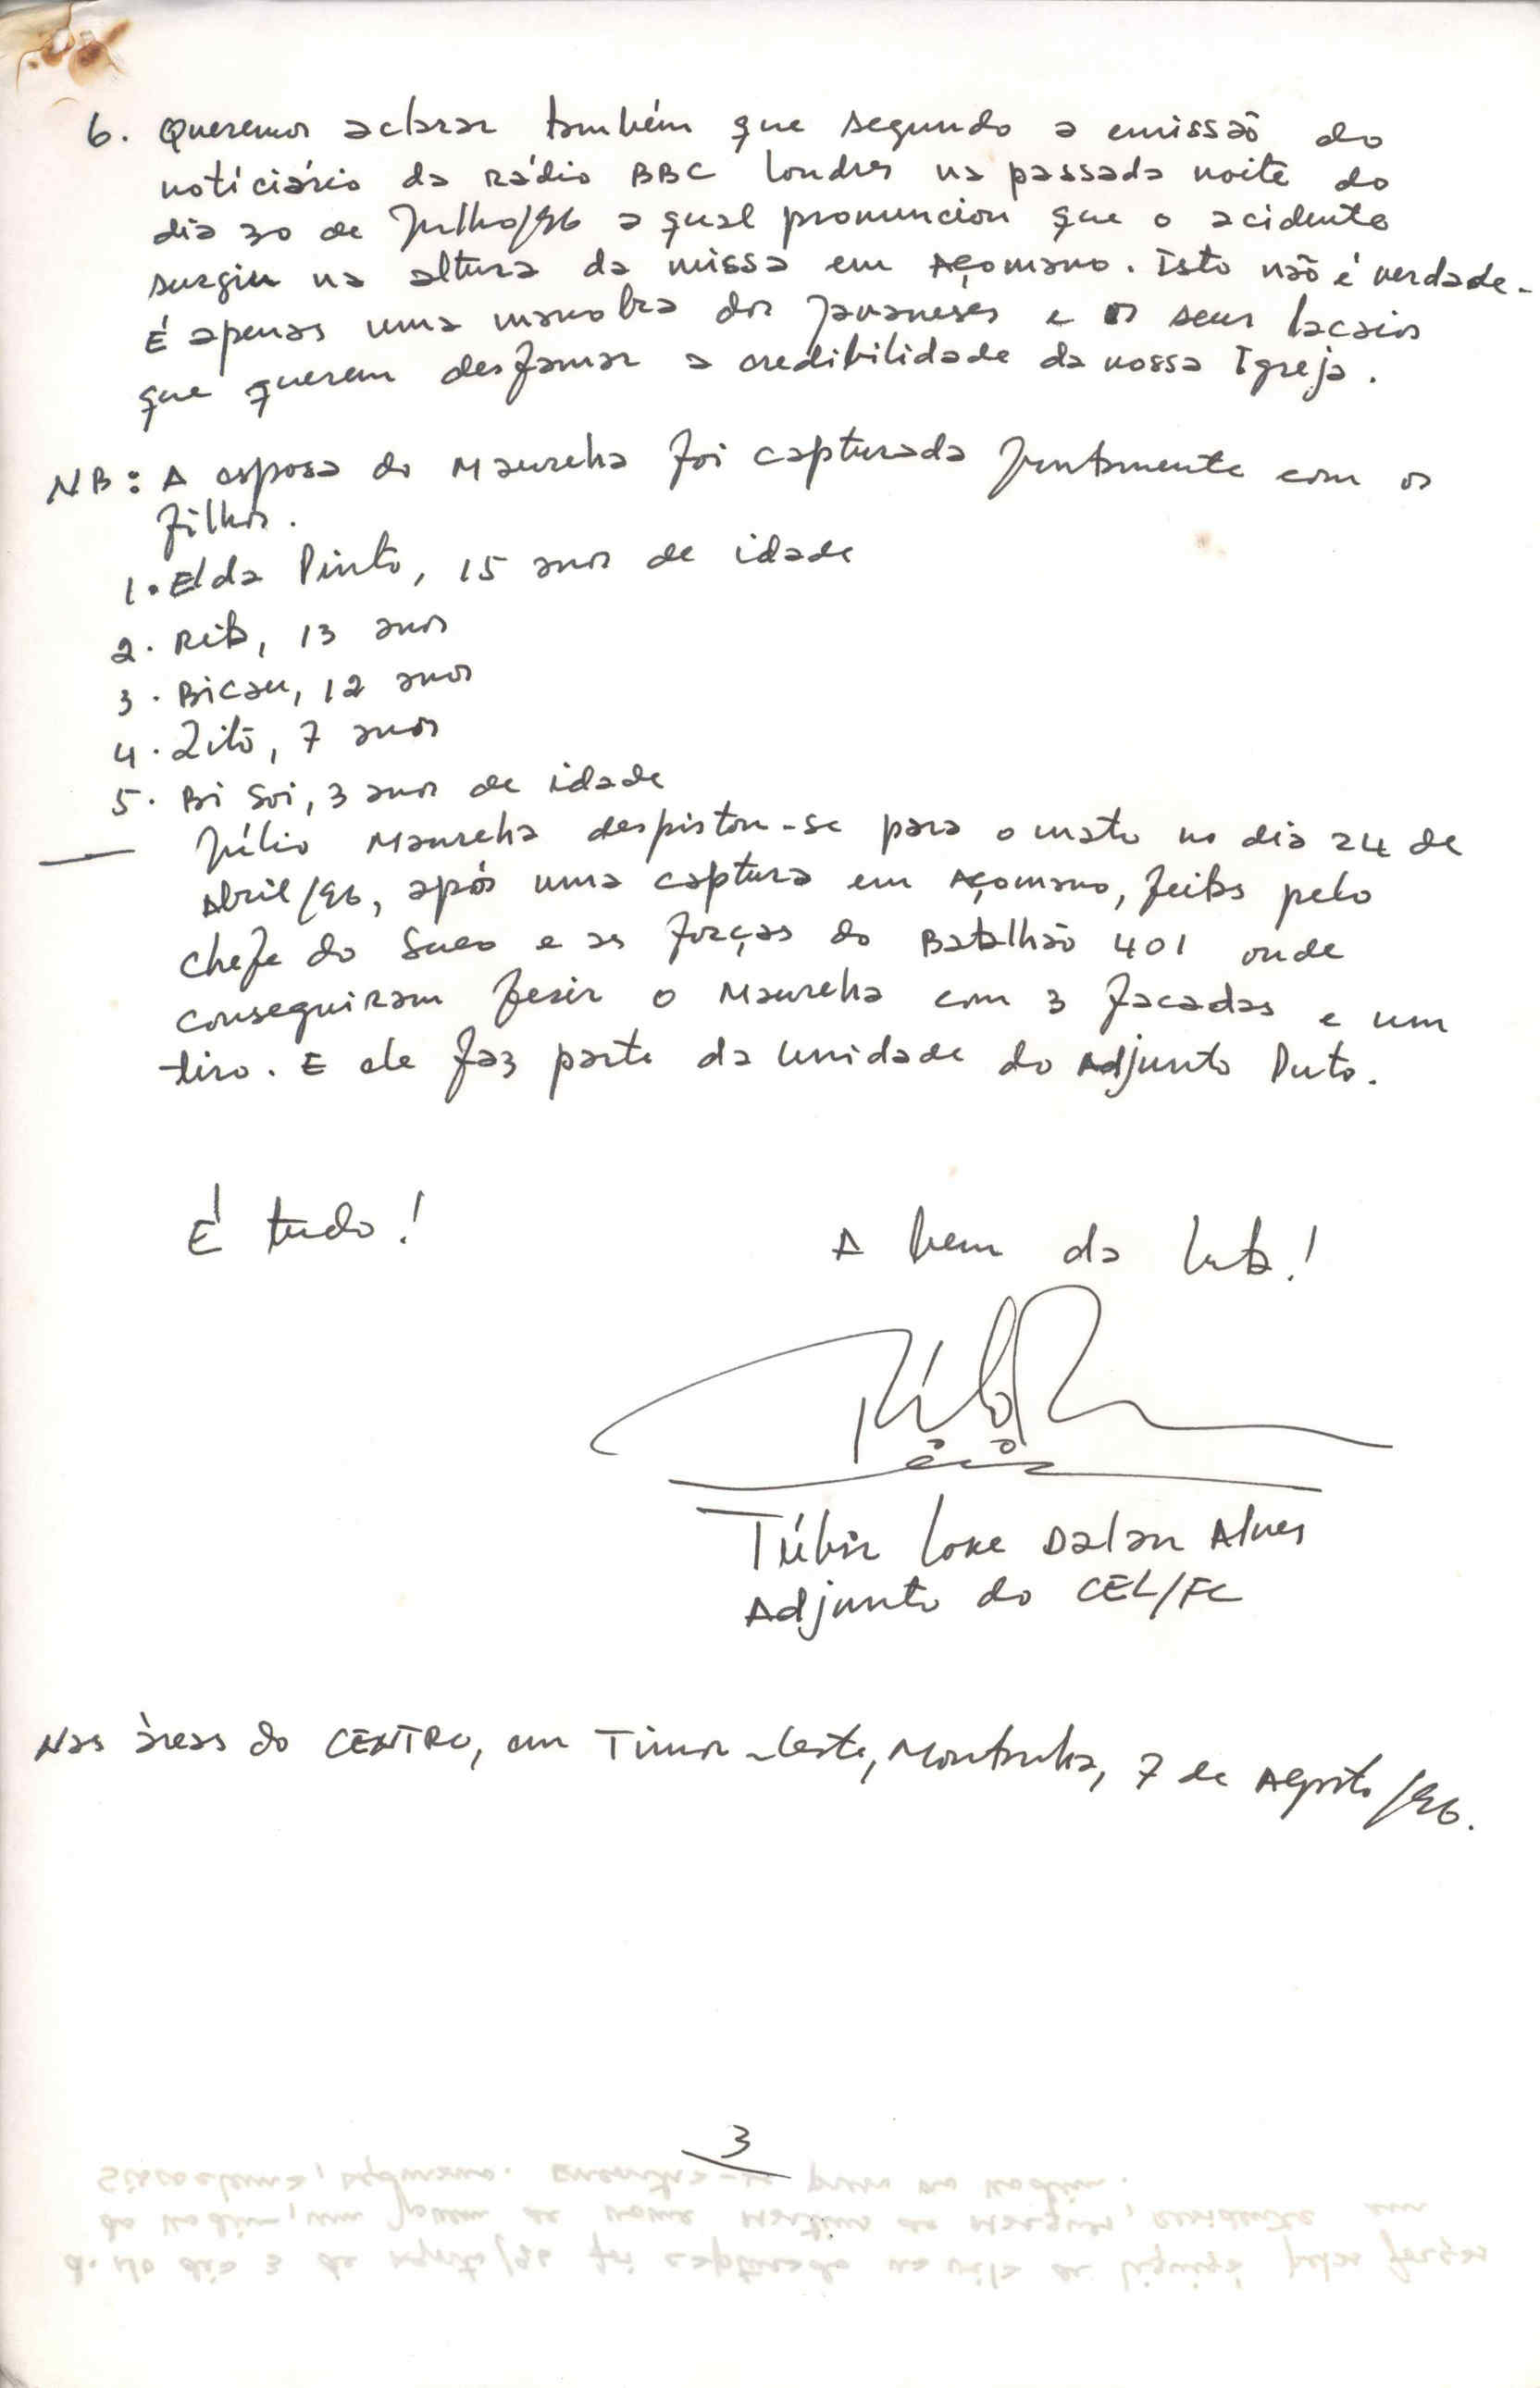 6. Queremos aclarar também que segundo a emissão do
notíciário da Rádio BBC Londres na passada noite do
dia 30 de Julho/96 a qual pronunciou que o acidente
surgiu na altura da missa em Açomano. Isto não é verdade.
É apenas uma manobra dos Javaneses e os seus lacaios
que querem desfamar a credibilidade da nossa Igreja.
NB: A esposa do Maureha foi capturada juntamente com os
filhos.
1. Elda Pinto, 15 anos de idade
2. Rita, 13 anos
3. Bicau, 12 anos
4. Zito, 7 anos
5. Bi Soi, 3 anos de idade
— Júlio Maureha despistou-se para o mato no dia 24 de
Abril/96, após uma captura em Açomano, feita pelo
chefe do Suco e as forças do Batalhão 401 onde
conseguiram ferir o Maureha com 3 facadas e um
tiro. E ele faz parte da Unidade do Adjunto Puto.
É tudo!
A bem da luta!
Túbir Loke Dalan Alves
Adjunto do CEL/FC
Nas áreas do CENTRO, em Timor-Leste, Montanha, 7 de Agosto/96.
3